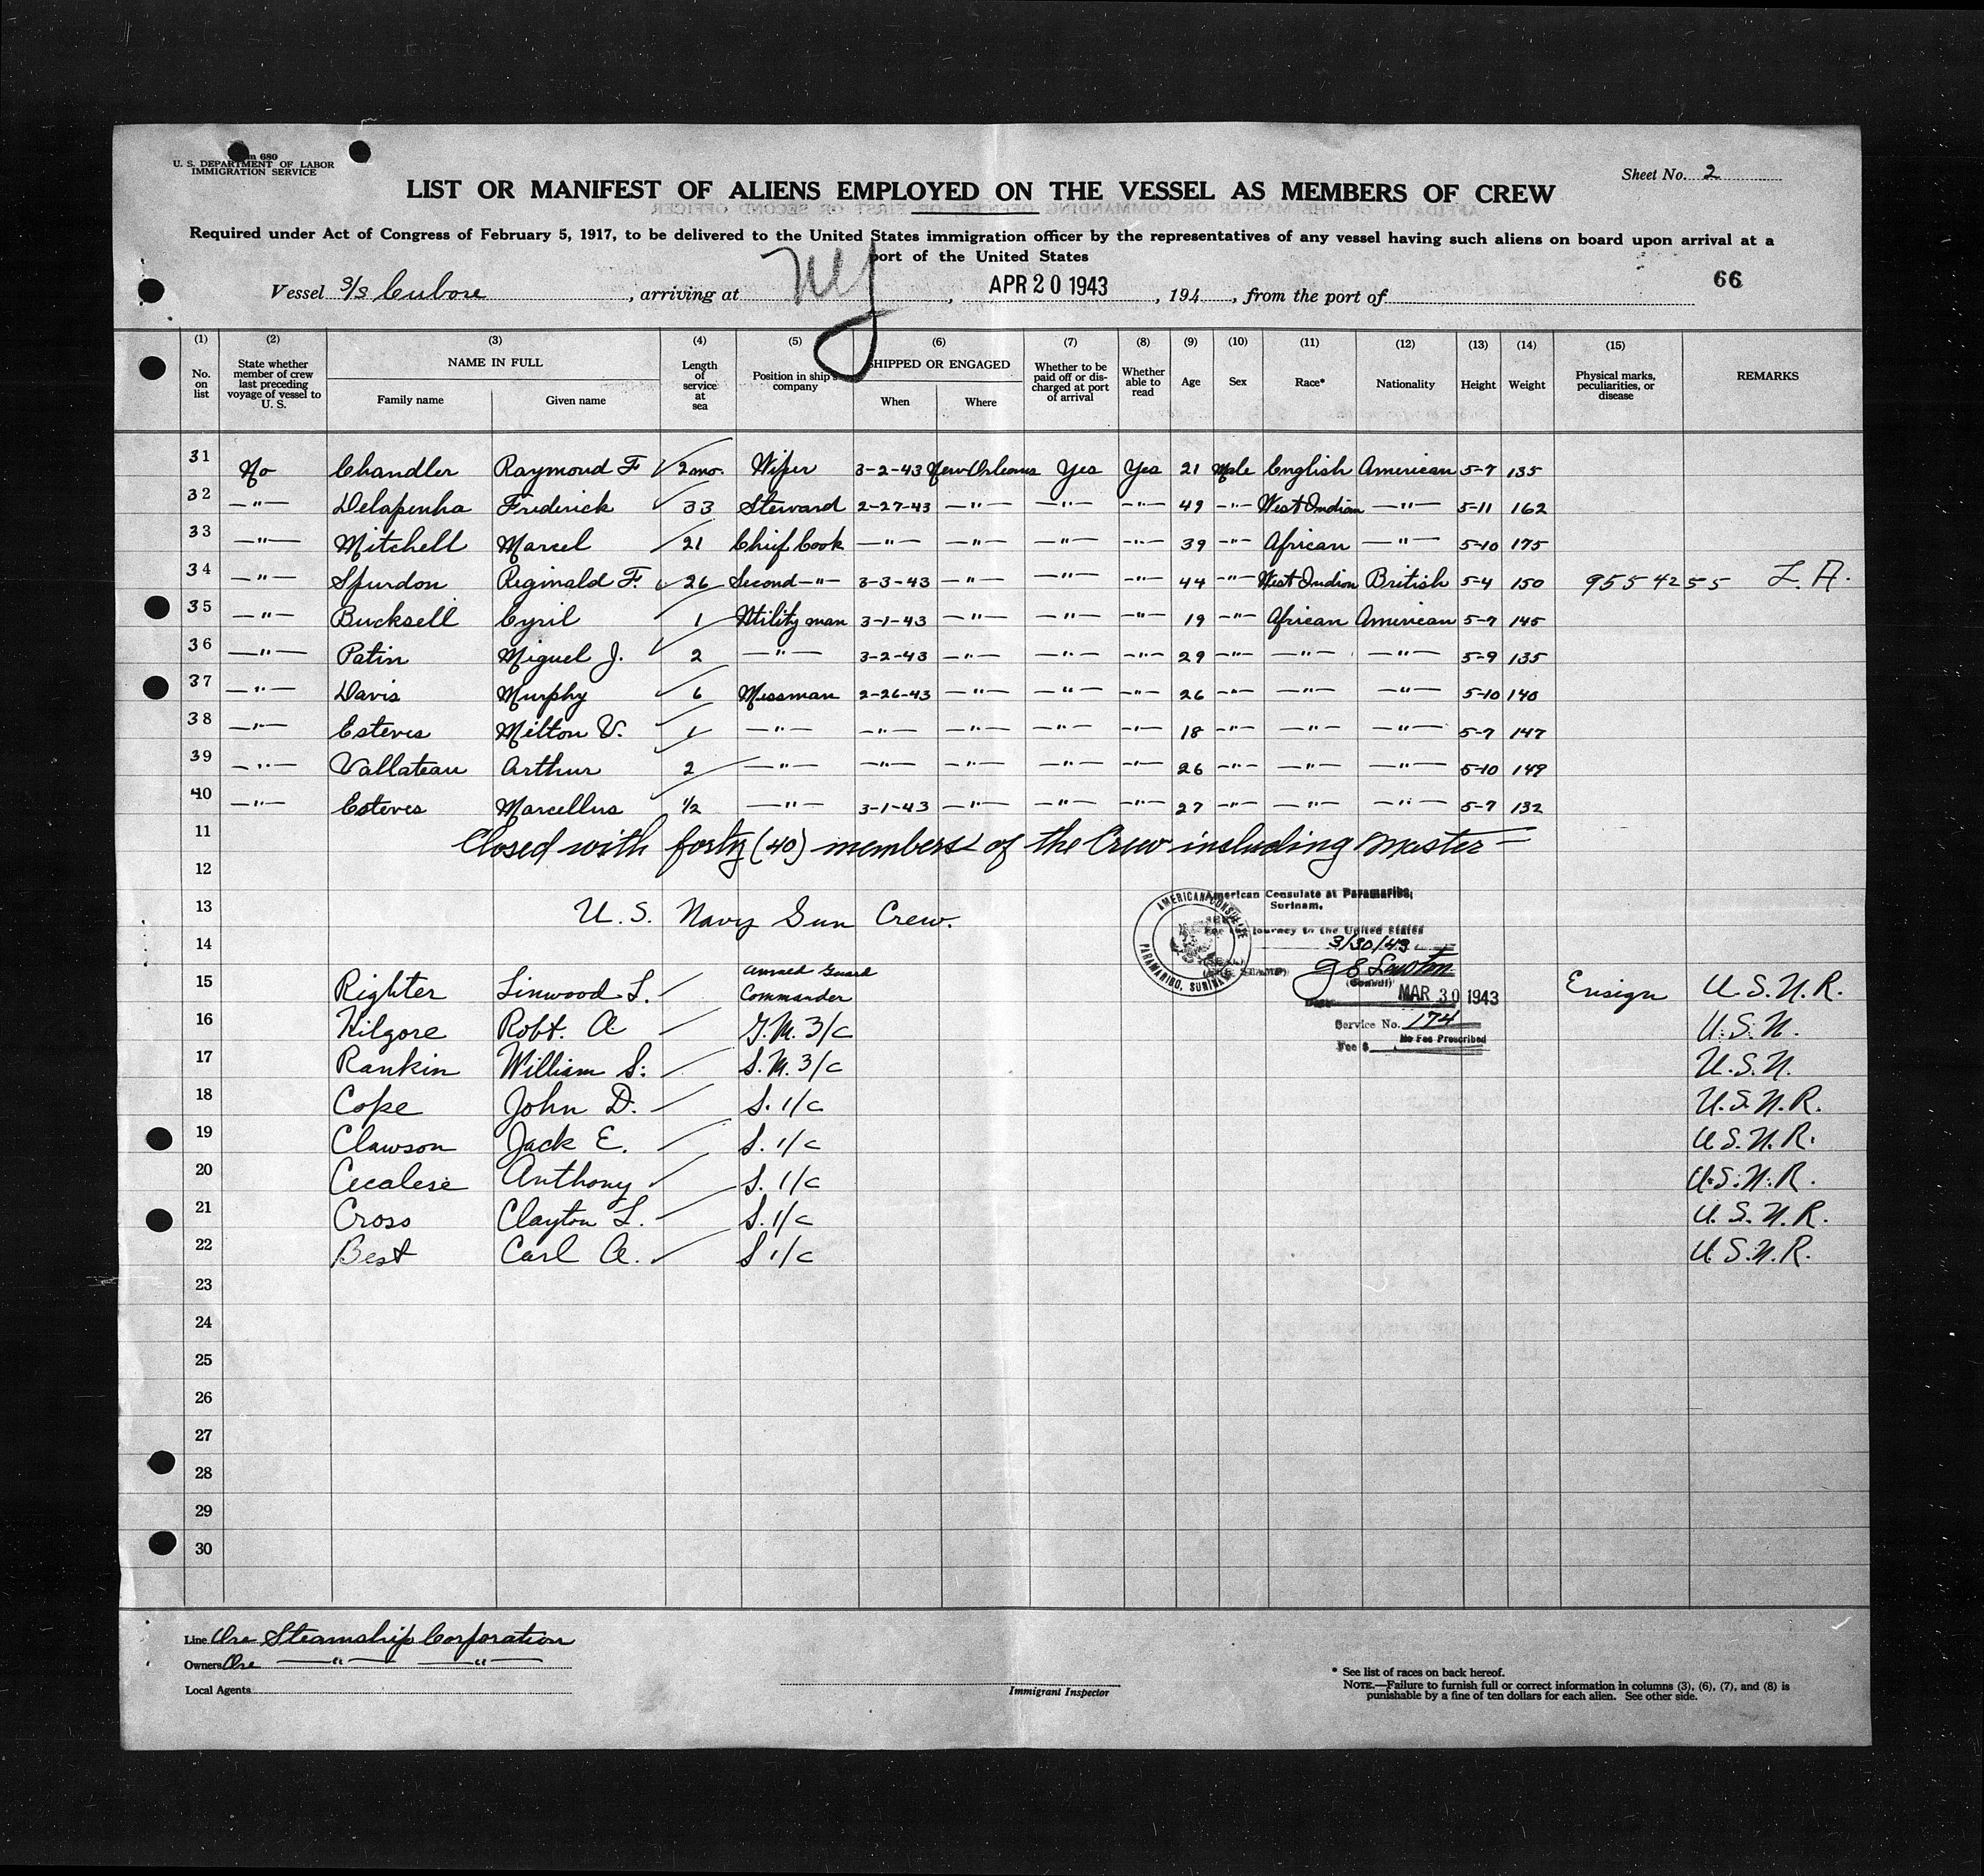 Form 680
U. S. DEPARTMENT OF LABOR
IMMIGRATION SERVICE
Sheet No. 2
LIST OR MANIFEST OF ALIENS EMPLOYED ON THE VESSEL AS MEMBERS OF CREW
Required under Act of Congress of February 5, 1917, to be delivered to the United States immigration officer by the representatives of any vessel having such aliens on board upon arrival at a
port of the United States
66
Vessel S/S Cubore, arriving at NY, APR 20 1943, 194, from the port of
(1) (2) (3) (4) (5) (6) (7) (8) (9) (10) (11) (12) (13) (14) (15)
No. on list State whether member of crew last preceding voyage of vessel to U. S. NAME IN FULL Family name Given name Length of service at sea Position in ship's company SHIPPED OR ENGAGED When Where Whether to be paid off or discharged at port of arrival Whether able to read Age Sex Race* Nationality Height Weight Physical marks, peculiarities, or disease REMARKS
31 No Chandler Raymond F 2mo. Wiper 3-2-43 New Orleans Yes Yes 21 Male English American 5-7 135
32 -"- Delapenha Frederick 33 Steward 2-27-43 -"- -"- -"- 49 -"- West Indian -"- 5-11 162
33 -"- Mitchell Marcel 21 Chief Cook -"- -"- -"- -"- 39 -"- African -"- 5-10 175
34 -"- Spurdon Reginald F. 26 Second -"- 3-3-43 -"- -"- -"- 44 -"- West Indian British 5-4 150 9554255 L.A.
35 -"- Bucksell Cyril 1 Utility man 3-1-43 -"- -"- -"- 19 -"- African American 5-7 145
36 -"- Patin Miguel J. 2 -"- 3-2-43 -"- -"- -"- 29 -"- -"- -"- 5-9 135
37 -"- Davis Murphy 6 Messman 2-26-43 -"- -"- -"- 26 -"- -"- -"- 5-10 140
38 -"- Esteves Milton V. 1 -"- -"- -"- -"- -"- 18 -"- -"- -"- 5-7 147
39 -"- Vallateau Arthur 2 -"- -"- -"- -"- -"- 26 -"- -"- -"- 5-10 149
40 -"- Esteves Marcellus 1/2 -"- 3-1-43 -"- -"- -"- 27 -"- -"- -"- 5-7 132
11 Closed with forty (40) members of the Crew including Master
12
American Consulate at Paramaribo,
Surinam.
13 U. S. Navy Gun Crew.
AMERICAN CONSULATE PARAMARIBO, SURINAM
For the journey to the United States
14
3/30/43
(Consul)
MAR 30 1943
Service No. 174
Fee $ No Fee Prescribed
15 Righter Linwood L. Armed Guard Commander Ensign U.S.N.R.
16 Kilgore Robt. A G.M. 3/c U.S.N.
17 Rankin William S. S.M. 3/c U.S.N.
18 Cope John D. S. 1/c U.S.N.R.
19 Clawson Jack E. S. 1/c U.S.N.R.
20 Cecalese Anthony S. 1/c U.S.N.R.
21 Cross Clayton L. S. 1/c U.S.N.R.
22 Best Carl A. S 1/c U.S.N.R.
23
24
25
26
27
28
29
30
Line Ore Steamship Corporation
Owners Ore -"- -"-
Local Agents
Immigrant Inspector
* See list of races on back hereof.
NOTE.—Failure to furnish full or correct information in columns (3), (6), (7), and (8) is
punishable by a fine of ten dollars for each alien. See other side.